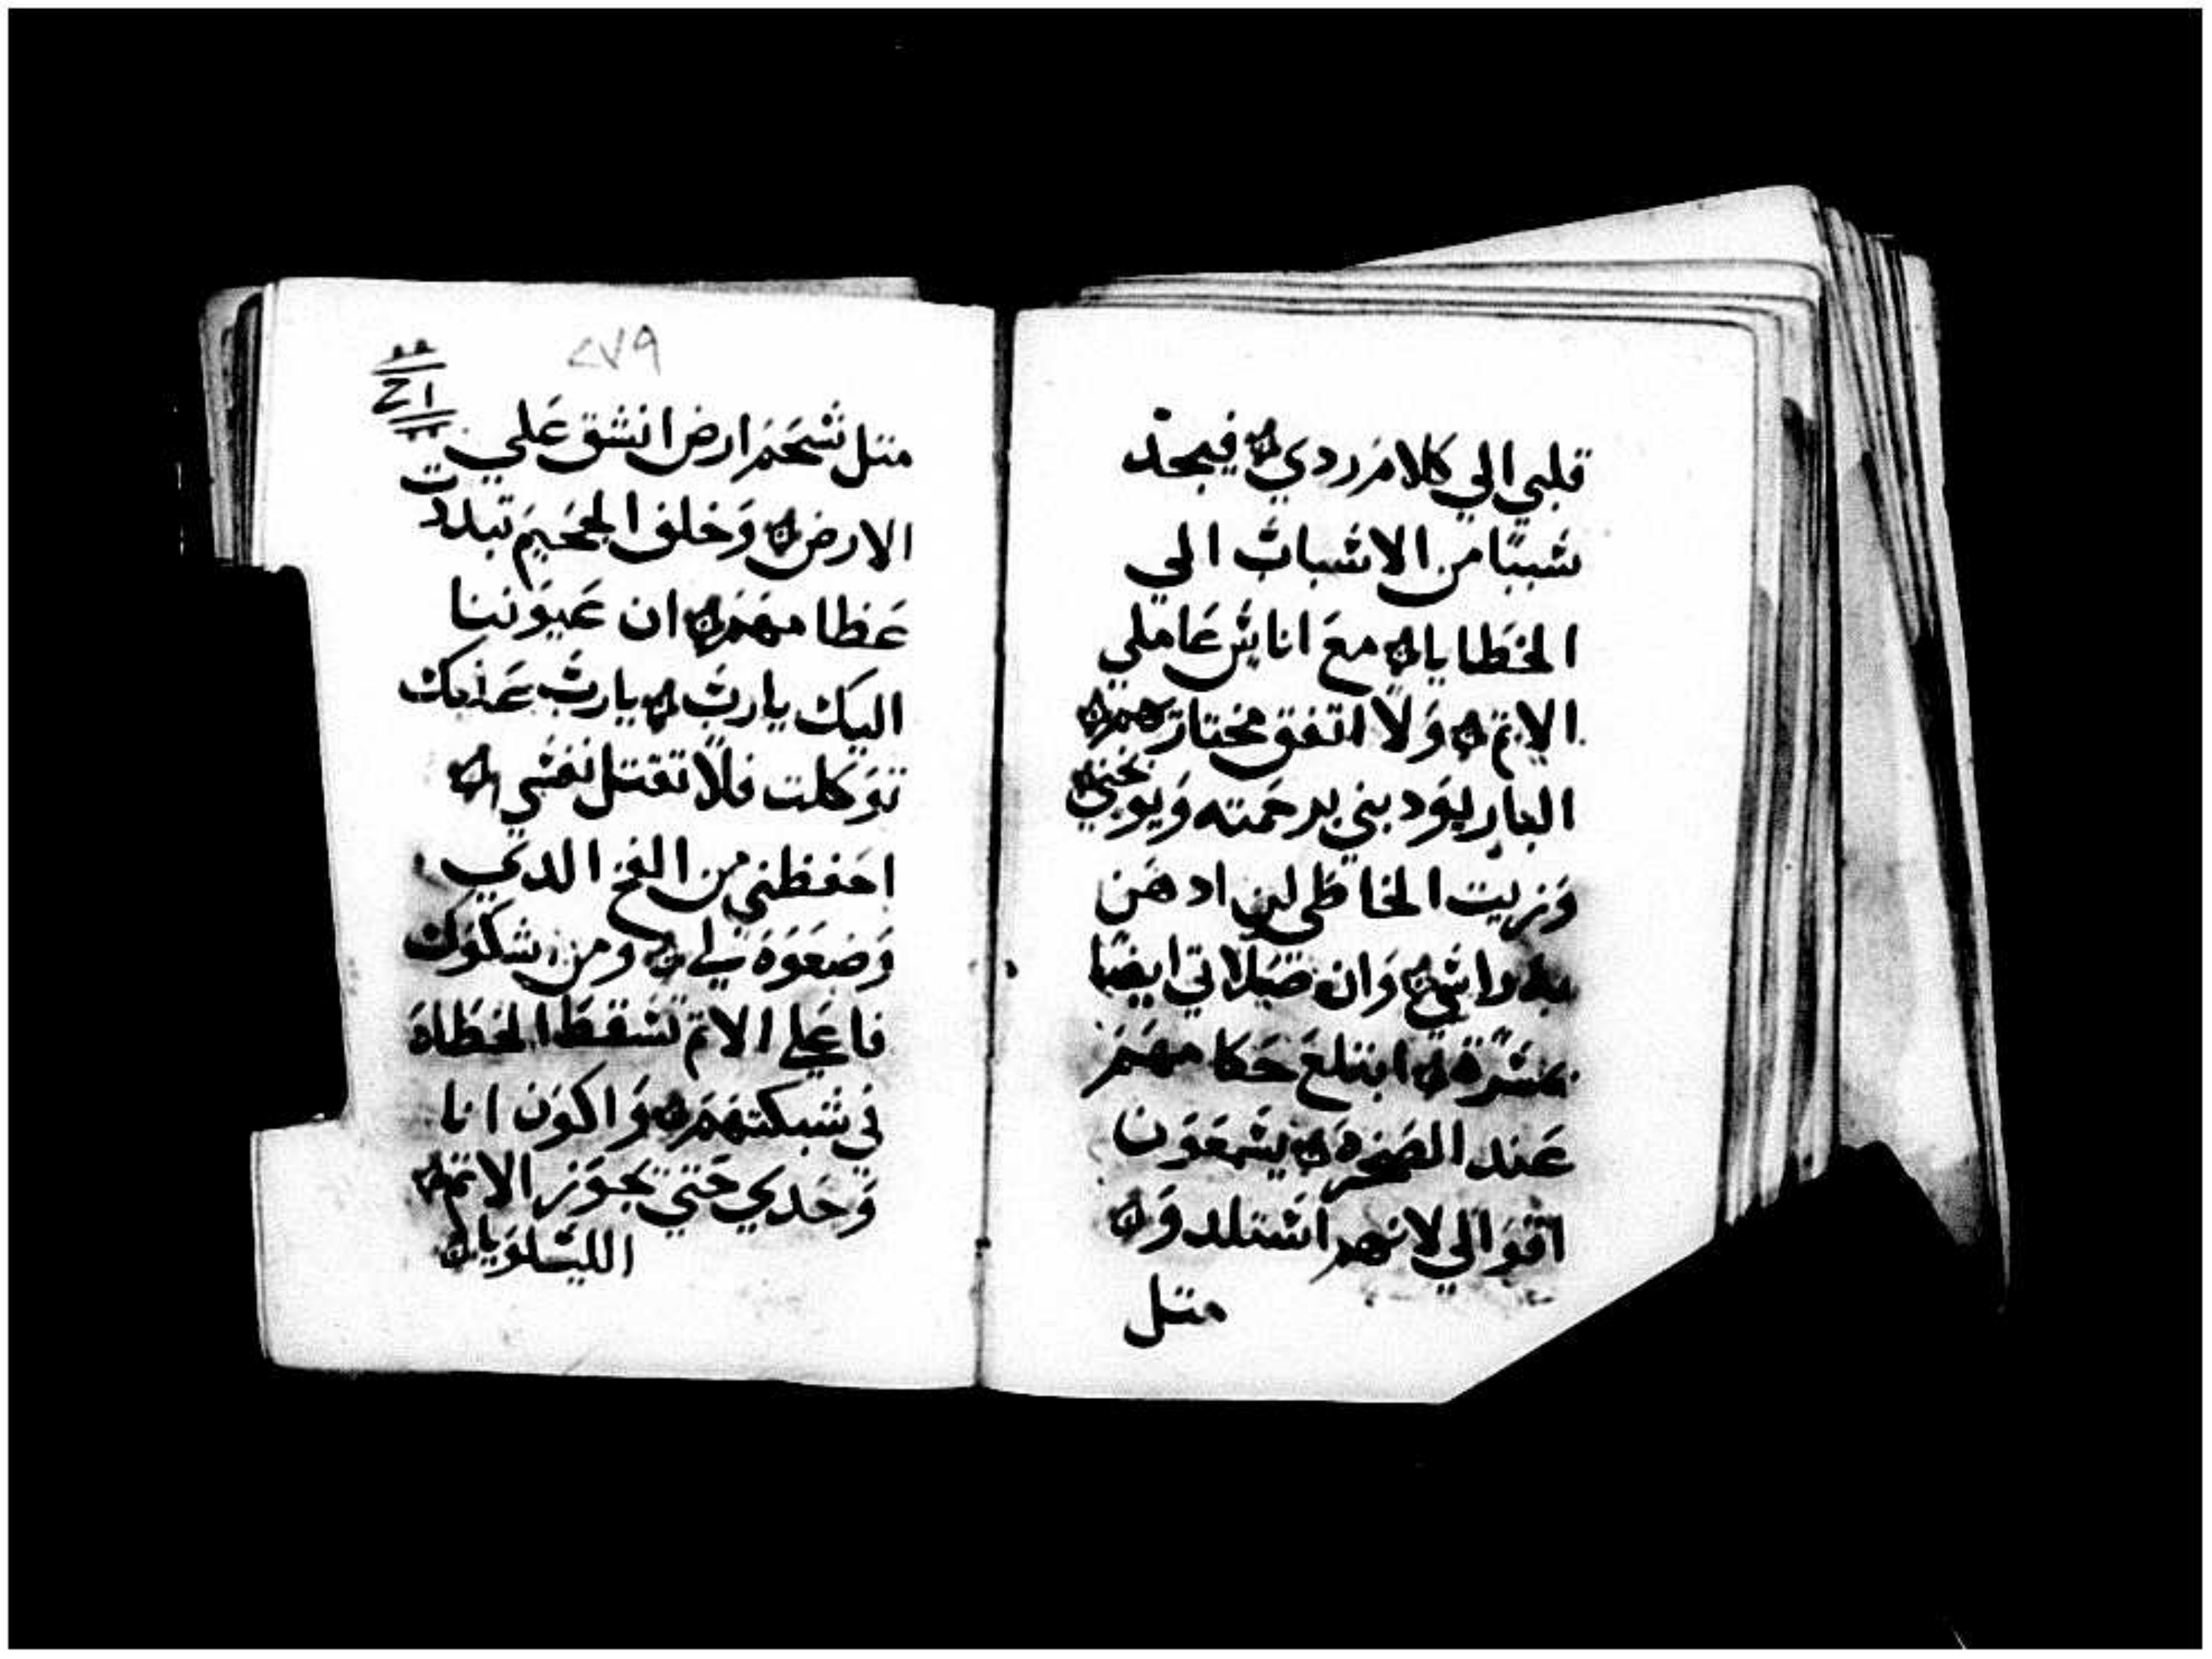 قلبي الي كلام ردي فيجد
شببا من الاشباب الي
الخطايا مع اناس عاملي
الاتم ولا اتفق مختاريهم
البار يودبني برحمته ويوبخني
وزيت الخاطي لن ادهن
به راسي وان صلاتي ايضا
مسرة ابتلع حكامهم
عند الصخرة يسمعون
اقوالي لانهم استلدوا
متل
٢٧٩
متل شحم ارض انشق علي
الارض وخلف الجحيم تبددت
عظامهم ان عيوننا
اليك يارب يارب عليك
توكلت فلا تقتل نفسي
احفظني من الفخ الدي
وضعوه لي ومن شكوك
فاعلي الاتم تسقط الخطاه
في شبكتهم واكون انا
وحدي حتي يجوز الاتم
الليلويا